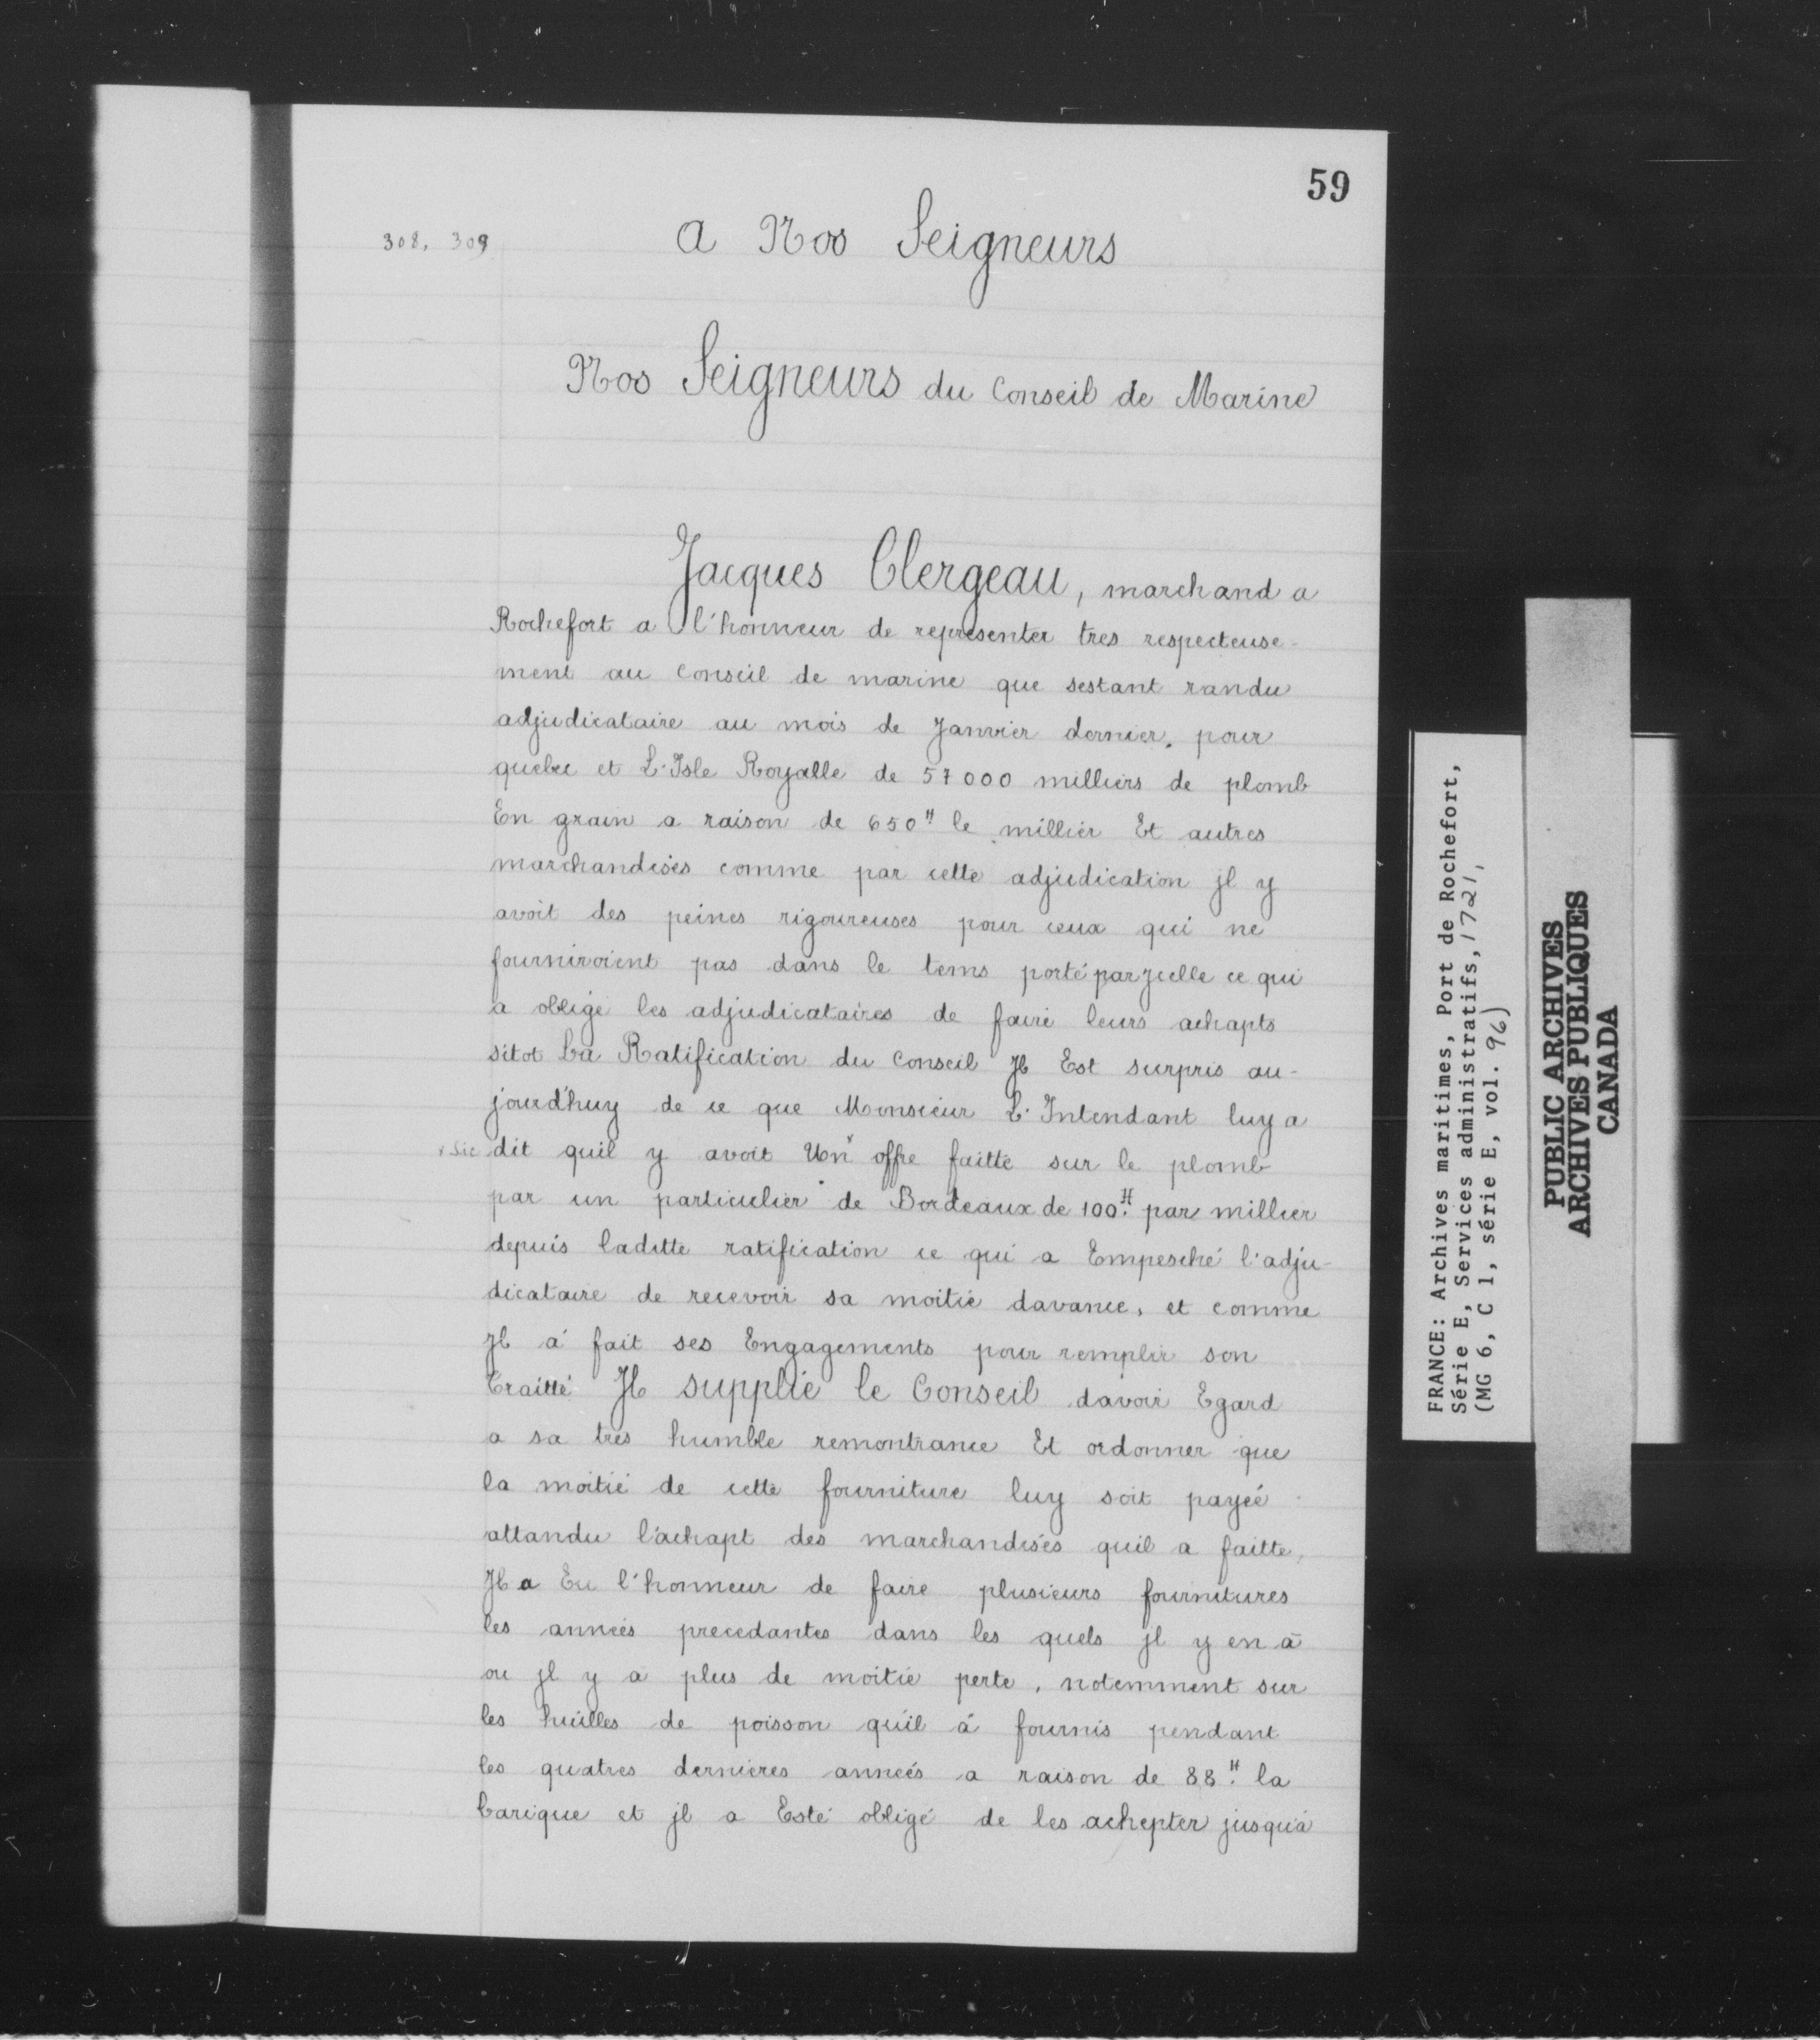 59
308, 309
A Nos Seigneurs
Nos Seigneurs du Conseil de Marine
Jacques Clergeau, marchand a
Rochefort a l'honneur de representer tres respecteuse-
ment au Conseil de marine que sestant randu
adjudicataire au mois de Janvier dernier, pour
quebec et L'Isle Royalle de 57000 milliers de plomb
En grain a raison de 650# le millier Et autres
marchandises comme par cette adjudication jl y
avoit des peines rigoureuses pour ceux qui ne
fourniroient pas dans le tems porté par jcelle ce qui
a obligé les adjudicataires de faire leurs achapts
sitot La Ratification du Conseil Jl Est surpris au-
jourd'huy de ce que Monsieur L'Intendant luy a
x sic dit quil y avoit Un x offre faitte sur le plomb
par un particulier de Bordeaux de 100# par millier
depuis laditte ratification ce qui a Empesché l'adju-
dicataire de recevoir sa moitié davance, et comme
Jl á fait ses Engagements pour remplir son
Traitté Jl supplie le Conseil davoir Egard
a sa tres humble remontrance Et ordonner que
la moitié de cette fourniture luy soit payée
attandu l'achapt des marchandises quil a faitte,
Jl a Eu l'honneur de faire plusieurs fournitures
les années precedantes dans les quels jl y en à
ou jl y a plus de moitié perte, notemment sur
les huilles de poisson qu'il á fournis pendant
les quatres dernieres années a raison de 88# la
barique et jl a Esté obligé de les achepter jusqu'á
FRANCE: Archives maritimes, Port de Rochefort,
Série E, Services administratifs, 1721,
(MG 6, C 1, série E, vol. 96)
PUBLIC ARCHIVES
ARCHIVES PUBLIQUES
CANADA